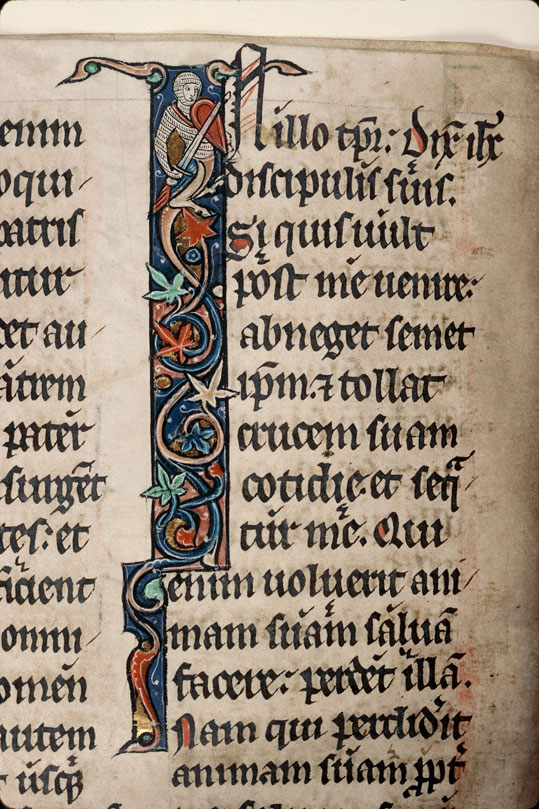 enim
oqui
patris
et au
patēr
tes: et
ficient
omni
omēn
autem
usqꝫ
In illo tp̄r: dix̄ ih̄c
discipulis suis.
Si quis uult
post me uenire:
abneget semet
ip̄m ⁊ tollat
crucem suam
cotidie. et seq̄
tur me. Qui
enim uoluerit ani
mam suam saluā
facere: perdet illā.
Nam qui perdidit
animam suam ꝓpt̄